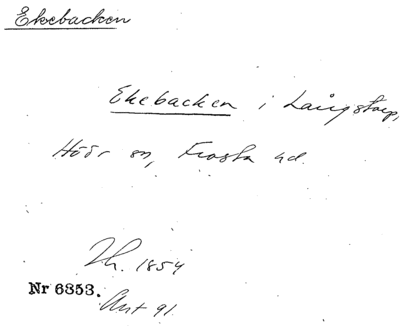 Ekebacken
Ekebacken i Långstorp,
Höör sn, Frosta hd.
Th. 1854
Nr 6353.
Ant 91